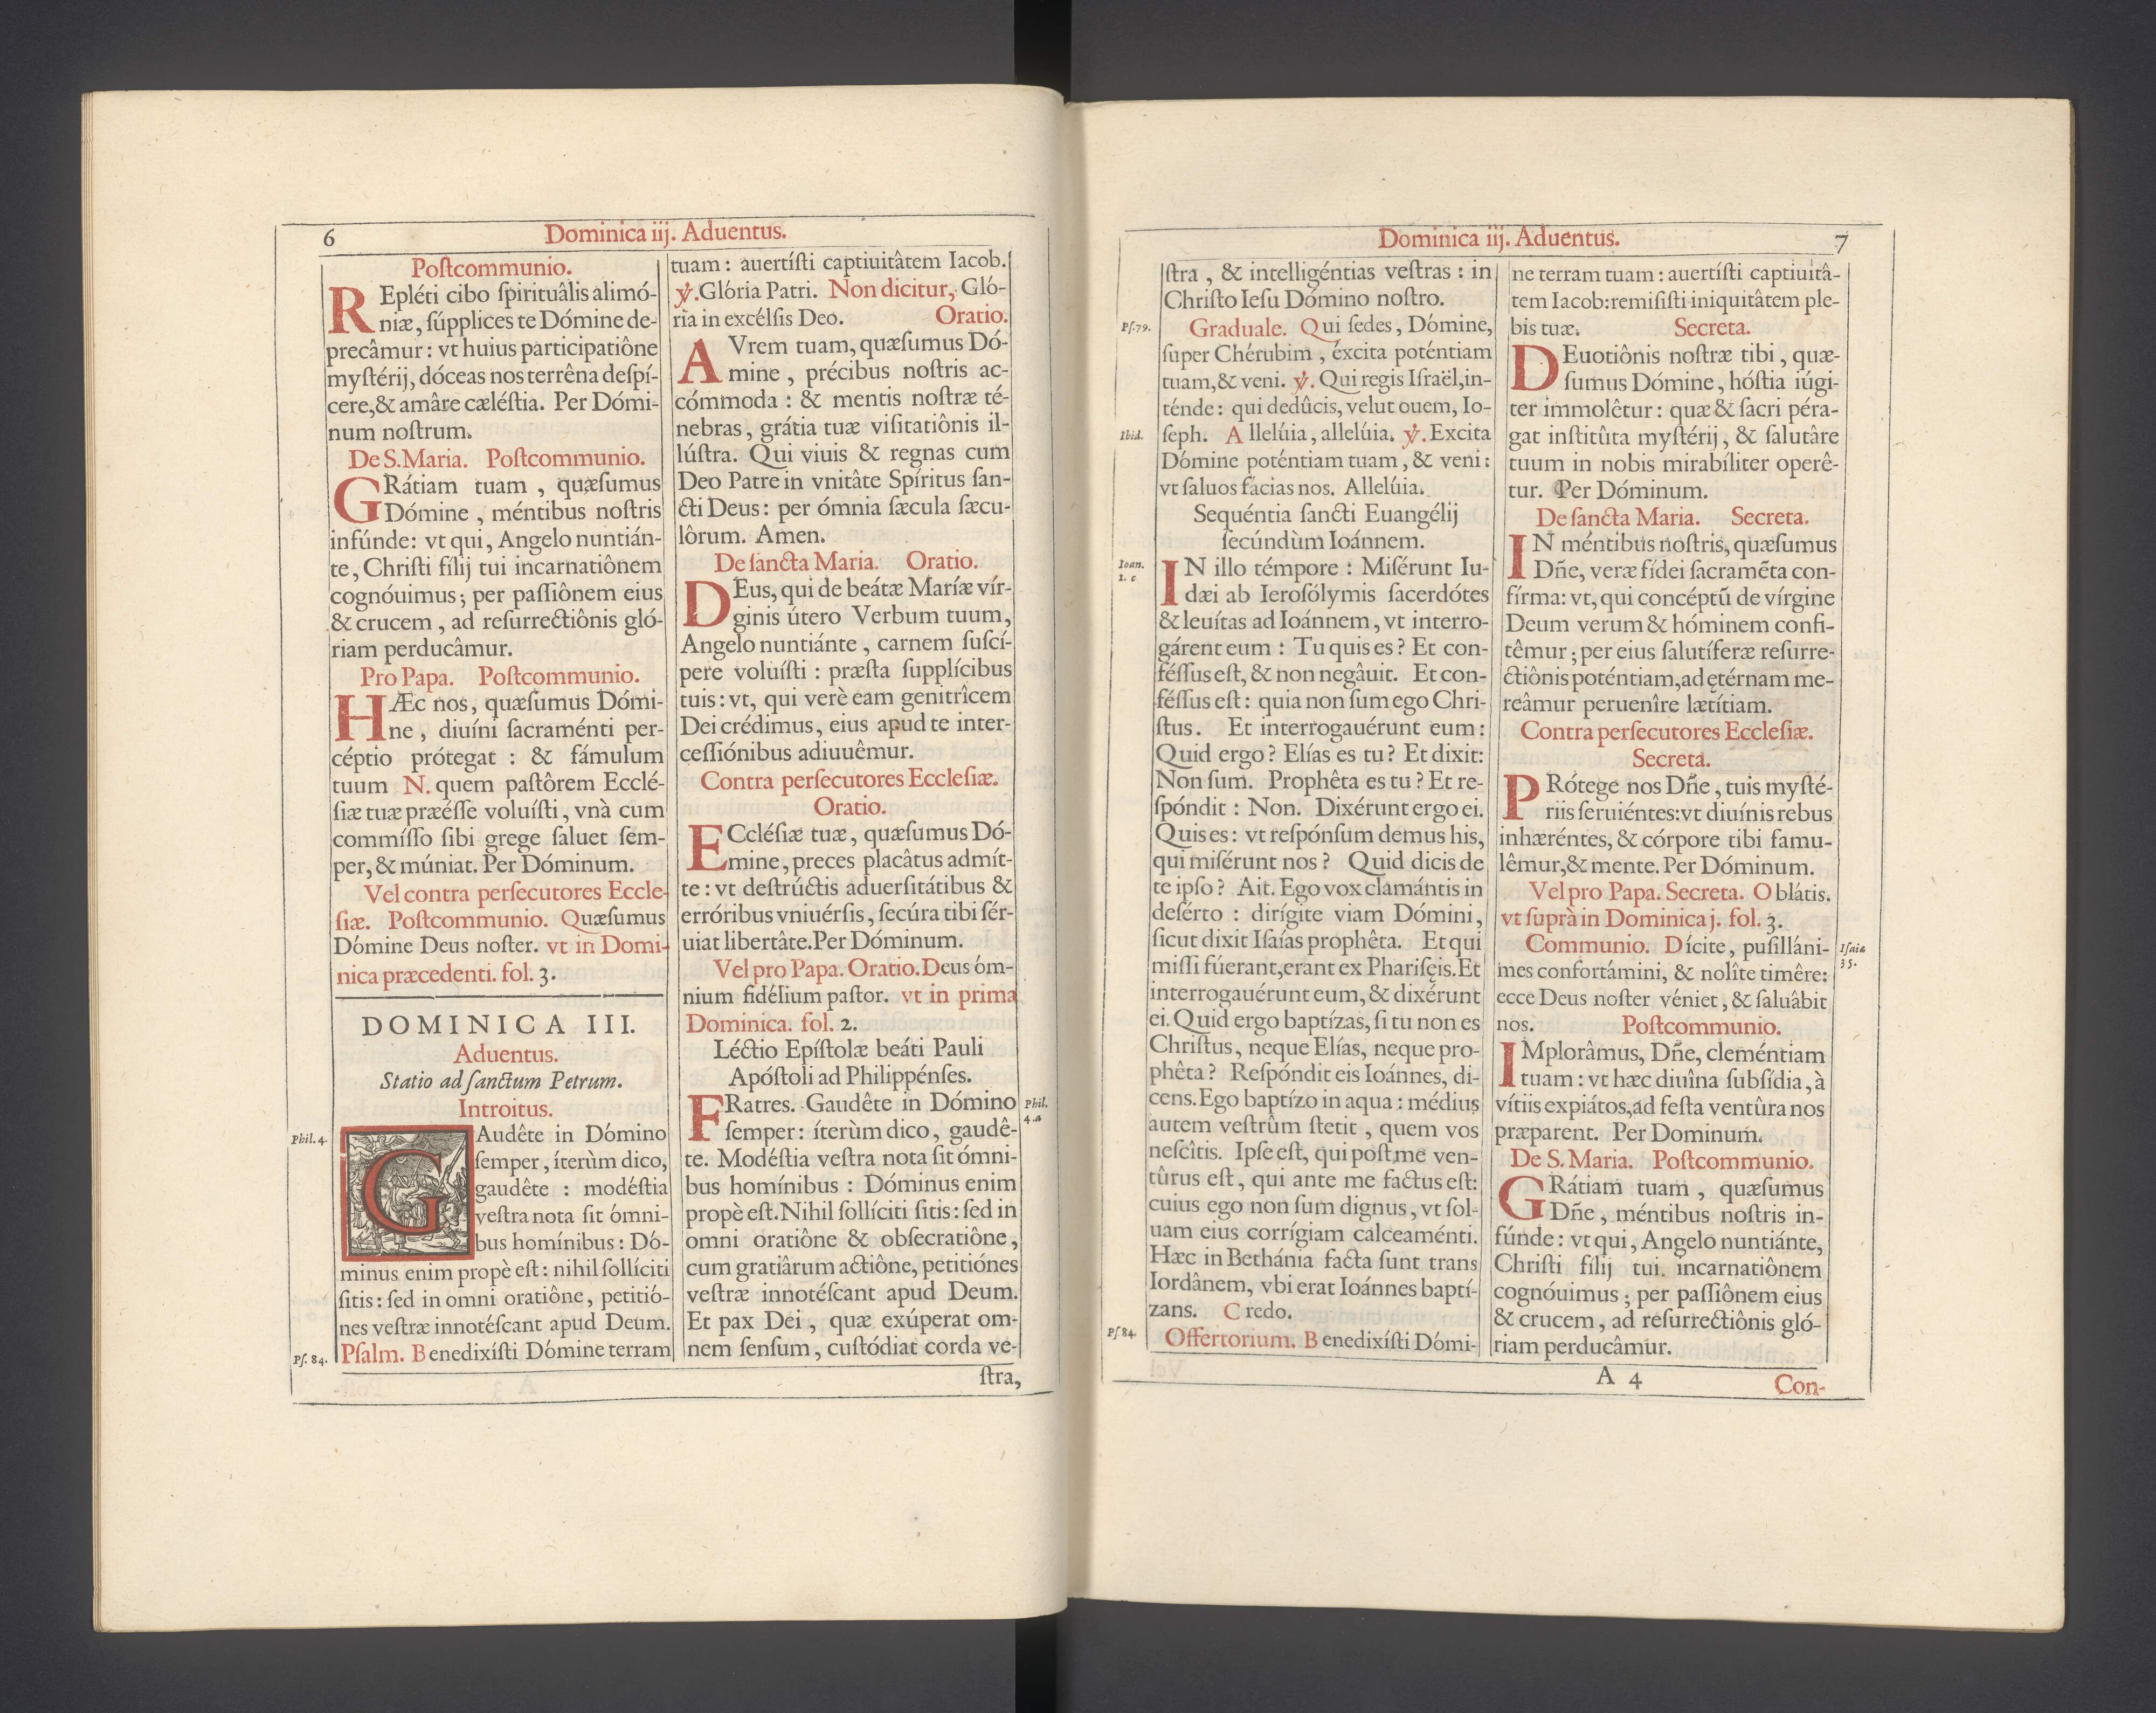 6
Dominica iij. Aduentus.
Poſtcommunio.
REpléti cibo ſpirituâlis alimó-
niæ, ſúpplices te Dómine de-
precâmur: vt huius participatiône
myſtérij, dóceas nos terrêna deſpí-
cere, & amâre cæléſtia. Per Dómi-
num noſtrum.
De S. Maria. Poſtcommunio.
GRátiam tuam, quæſumus
Dómine, méntibus noſtris
infúnde: vt qui, Angelo nuntián-
te, Chriſti fílij tui incarnatiônem
cognóuimus; per paſſiônem eius
& crucem, ad reſurrectiônis gló-
riam perducâmur.
Pro Papa. Poſtcommunio.
HÆc nos, quæſumus Dómi-
ne, diuíni ſacraménti per-
céptio prótegat: & fámulum
tuum N. quem paſtôrem Ecclé-
ſiæ tuæ præéſſe voluíſti, vnà cum
commíſſo ſibi grege ſaluet ſem-
per, & múniat. Per Dóminum.
Vel contra perſecutores Eccle-
ſiæ. Poſtcommunio. Quæſumus
Dómine Deus noſter. vt in Domi-
nica præcedenti. fol. 3.
DOMINICA III.
Aduentus.
Statio ad ſanctum Petrum.
Introitus.
Phil. 4.
GAudête in Dómino
ſemper, íterùm dico,
gaudête: modéſtia
veſtra nota ſit ómni-
bus homínibus: Dó-
minus enim propè eſt: nihil ſollíciti
ſitis: ſed in omni oratiône, petitió-
nes veſtræ innotéſcant apud Deum.
Pſ. 84.
Pſalm. Benedixíſti Dómine terram
tuam: auertíſti captiuitâtem Iacob.
℣. Glória Patri. Non dicitur, Gló-
ria in excélſis Deo. Oratio.
AVrem tuam, quæſumus Dó-
mine, précibus noſtris ac-
cómmoda: & mentis noſtræ té-
nebras, grátia tuæ viſitatiônis il-
lúſtra. Qui viuis & regnas cum
Deo Patre in vnitâte Spíritus ſan-
cti Deus: per ómnia ſæcula ſæcu-
lôrum. Amen.
De ſancta Maria. Oratio.
DEus, qui de beátæ Maríæ vír-
ginis útero Verbum tuum,
Angelo nuntiánte, carnem ſuſcí-
pere voluíſti: præſta ſupplícibus
tuis: vt, qui verè eam genitrîcem
Dei crédimus, eius apud te inter-
ceſſiónibus adiuuêmur.
Contra perſecutores Eccleſiæ.
Oratio.
ECcléſiæ tuæ, quæſumus Dó-
mine, preces placâtus admít-
te: vt deſtrúctis aduerſitátibus &
erróribus vniuérſis, ſecúra tibi ſér-
uiat libertâte. Per Dóminum.
Vel pro Papa. Oratio. Deus óm-
nium fidélium paſtor. vt in prima
Dominica. fol. 2.
Léctio Epíſtolæ beáti Pauli
Apóſtoli ad Philippénſes.
Phil.
4. a
FRatres. Gaudête in Dómino
ſemper: íterùm dico, gaudê-
te. Modéſtia veſtra nota ſit ómni-
bus homínibus: Dóminus enim
propè eſt. Nihil ſollíciti ſitis: ſed in
omni oratiône & obſecratiône,
cum gratiârum actiône, petitiónes
veſtræ innotéſcant apud Deum.
Et pax Dei, quæ exúperat om-
nem ſenſum, cuſtódiat corda ve-
ſtra,
Dominica iij. Aduentus.
7
ſtra, & intelligéntias veſtras: in
Chriſto Ieſu Dómino noſtro.
Pſ. 79.
Graduale. Qui ſedes, Dómine,
ſuper Chérubim, éxcita poténtiam
tuam, & veni. ℣. Qui regis Iſraël, in-
ténde: qui dedûcis, velut ouem, Io-
Ibid.
ſeph. Allelúia, allelúia. ℣. Excita
Dómine poténtiam tuam, & veni:
vt ſaluos fácias nos. Allelúia.
Sequéntia ſancti Euangélij
ſecúndùm Ioánnem.
Ioan.
1. c
IN illo témpore: Miſérunt Iu-
dæi ab Ieroſólymis ſacerdótes
& leuítas ad Ioánnem, vt interro-
gárent eum: Tu quis es? Et con-
féſſus eſt, & non negâuit. Et con-
féſſus eſt: quia non ſum ego Chri-
ſtus. Et interrogauérunt eum:
Quid ergo? Elías es tu? Et dixit:
Non ſum. Prophêta es tu? Et re-
ſpóndit: Non. Dixérunt ergo ei.
Quis es: vt reſpónſum demus his,
qui miſérunt nos? Quid dicis de
te ipſo? Ait. Ego vox clamántis in
deſérto: dirígite viam Dómini,
ſicut dixit Iſaías prophêta. Et qui
miſſi fúerant, erant ex Phariſęis. Et
interrogauérunt eum, & dixérunt
ei. Quid ergo baptízas, ſi tu non es
Chriſtus, neque Elías, neque pro-
phêta? Reſpóndit eis Ioánnes, di-
cens. Ego baptízo in aqua: médius
autem veſtrûm ſtetit, quem vos
neſcîtis. Ipſe eſt, qui poſt me ven-
tûrus eſt, qui ante me factus eſt:
cuius ego non ſum dignus, vt ſol-
uam eius corrígiam calceaménti.
Hæc in Bethánia facta ſunt trans
Iordânem, vbi erat Ioánnes baptí-
zans. Credo.
Pſ 84.
Offertorium. Benedixíſti Dómi-
ne terram tuam: auertíſti captiuitâ-
tem Iacob: remiſiſti iniquitâtem ple-
bis tuæ. Secreta.
DEuotiônis noſtræ tibi, quæ-
ſumus Dómine, hóſtia iúgi-
ter immolêtur: quæ & ſacri péra-
gat inſtitûta myſtérij, & ſalutâre
tuum in nobis mirabíliter operê-
tur. Per Dóminum.
De ſancta Maria. Secreta.
IN méntibus noſtris, quæſumus
Dñe, veræ fídei ſacramẽta con-
fírma: vt, qui concéptũ de vírgine
Deum verum & hóminem confi-
têmur; per eius ſalutíferæ reſurre-
ctiônis poténtiam, ad ętérnam me-
reâmur peruenîre lætítiam.
Contra perſecutores Eccleſiæ.
Secreta.
PRótege nos Dñe, tuis myſté-
riis ſeruiéntes: vt diuínis rebus
inhæréntes, & córpore tibi famu-
lêmur, & mente. Per Dóminum.
Vel pro Papa. Secreta. Oblátis.
vt ſuprà in Dominica j. fol. 3.
Communio. Dícite, puſilláni-
Iſaiæ
35.
mes confortámini, & nolîte timêre:
ecce Deus noſter véniet, & ſaluâbit
nos. Poſtcommunio.
IMplorâmus, Dñe, cleméntiam
tuam: vt hæc diuîna ſubſídia, à
vítiis expiátos, ad feſta ventûra nos
præparent. Per Dominum.
De S. Maria. Poſtcommunio.
GRátiam tuam, quæſumus
Dñe, méntibus noſtris in-
fúnde: vt qui, Angelo nuntiánte,
Chriſti fílij tui incarnatiônem
cognóuimus; per paſſiônem eius
& crucem, ad reſurrectiônis gló-
riam perducâmur.
A 4
Con-